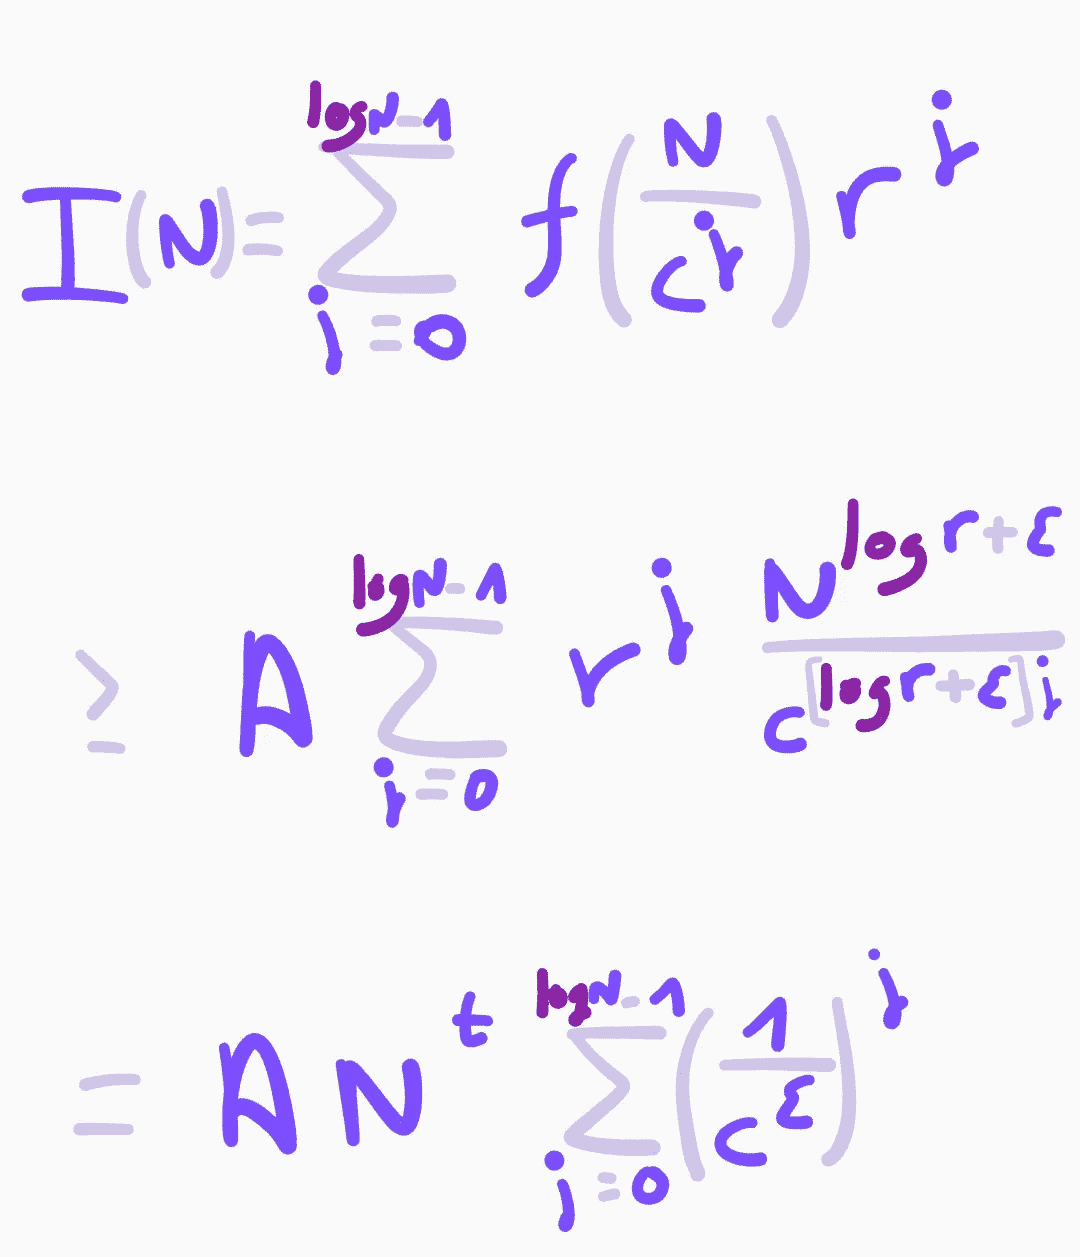 I(N) = \sum_{j=0}^{\log N - 1} f\left(\frac{N}{c^j}\right) r^j
\geq A \sum_{j=0}^{\log N - 1} r^j \frac{N^{\log r + \varepsilon}}{c^{[\log r + \varepsilon] j}}
= A N^t \sum_{j=0}^{\log N - 1} \left(\frac{1}{c^\varepsilon}\right)^j